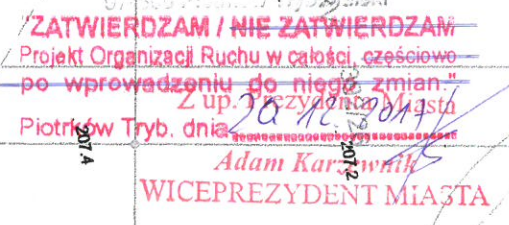 "ZATWIERDZAM / NIE ZATWIERDZAM
Projekt Organizacji Ruchu w całości, częściowo
po wprowadzeniu do niego zmian."
Z up. Prezydenta Miasta
Piotrków Tryb. dnia 20 12 2017
207.4
207.2
Adam Karzewnik
WICEPREZYDENT MIASTA